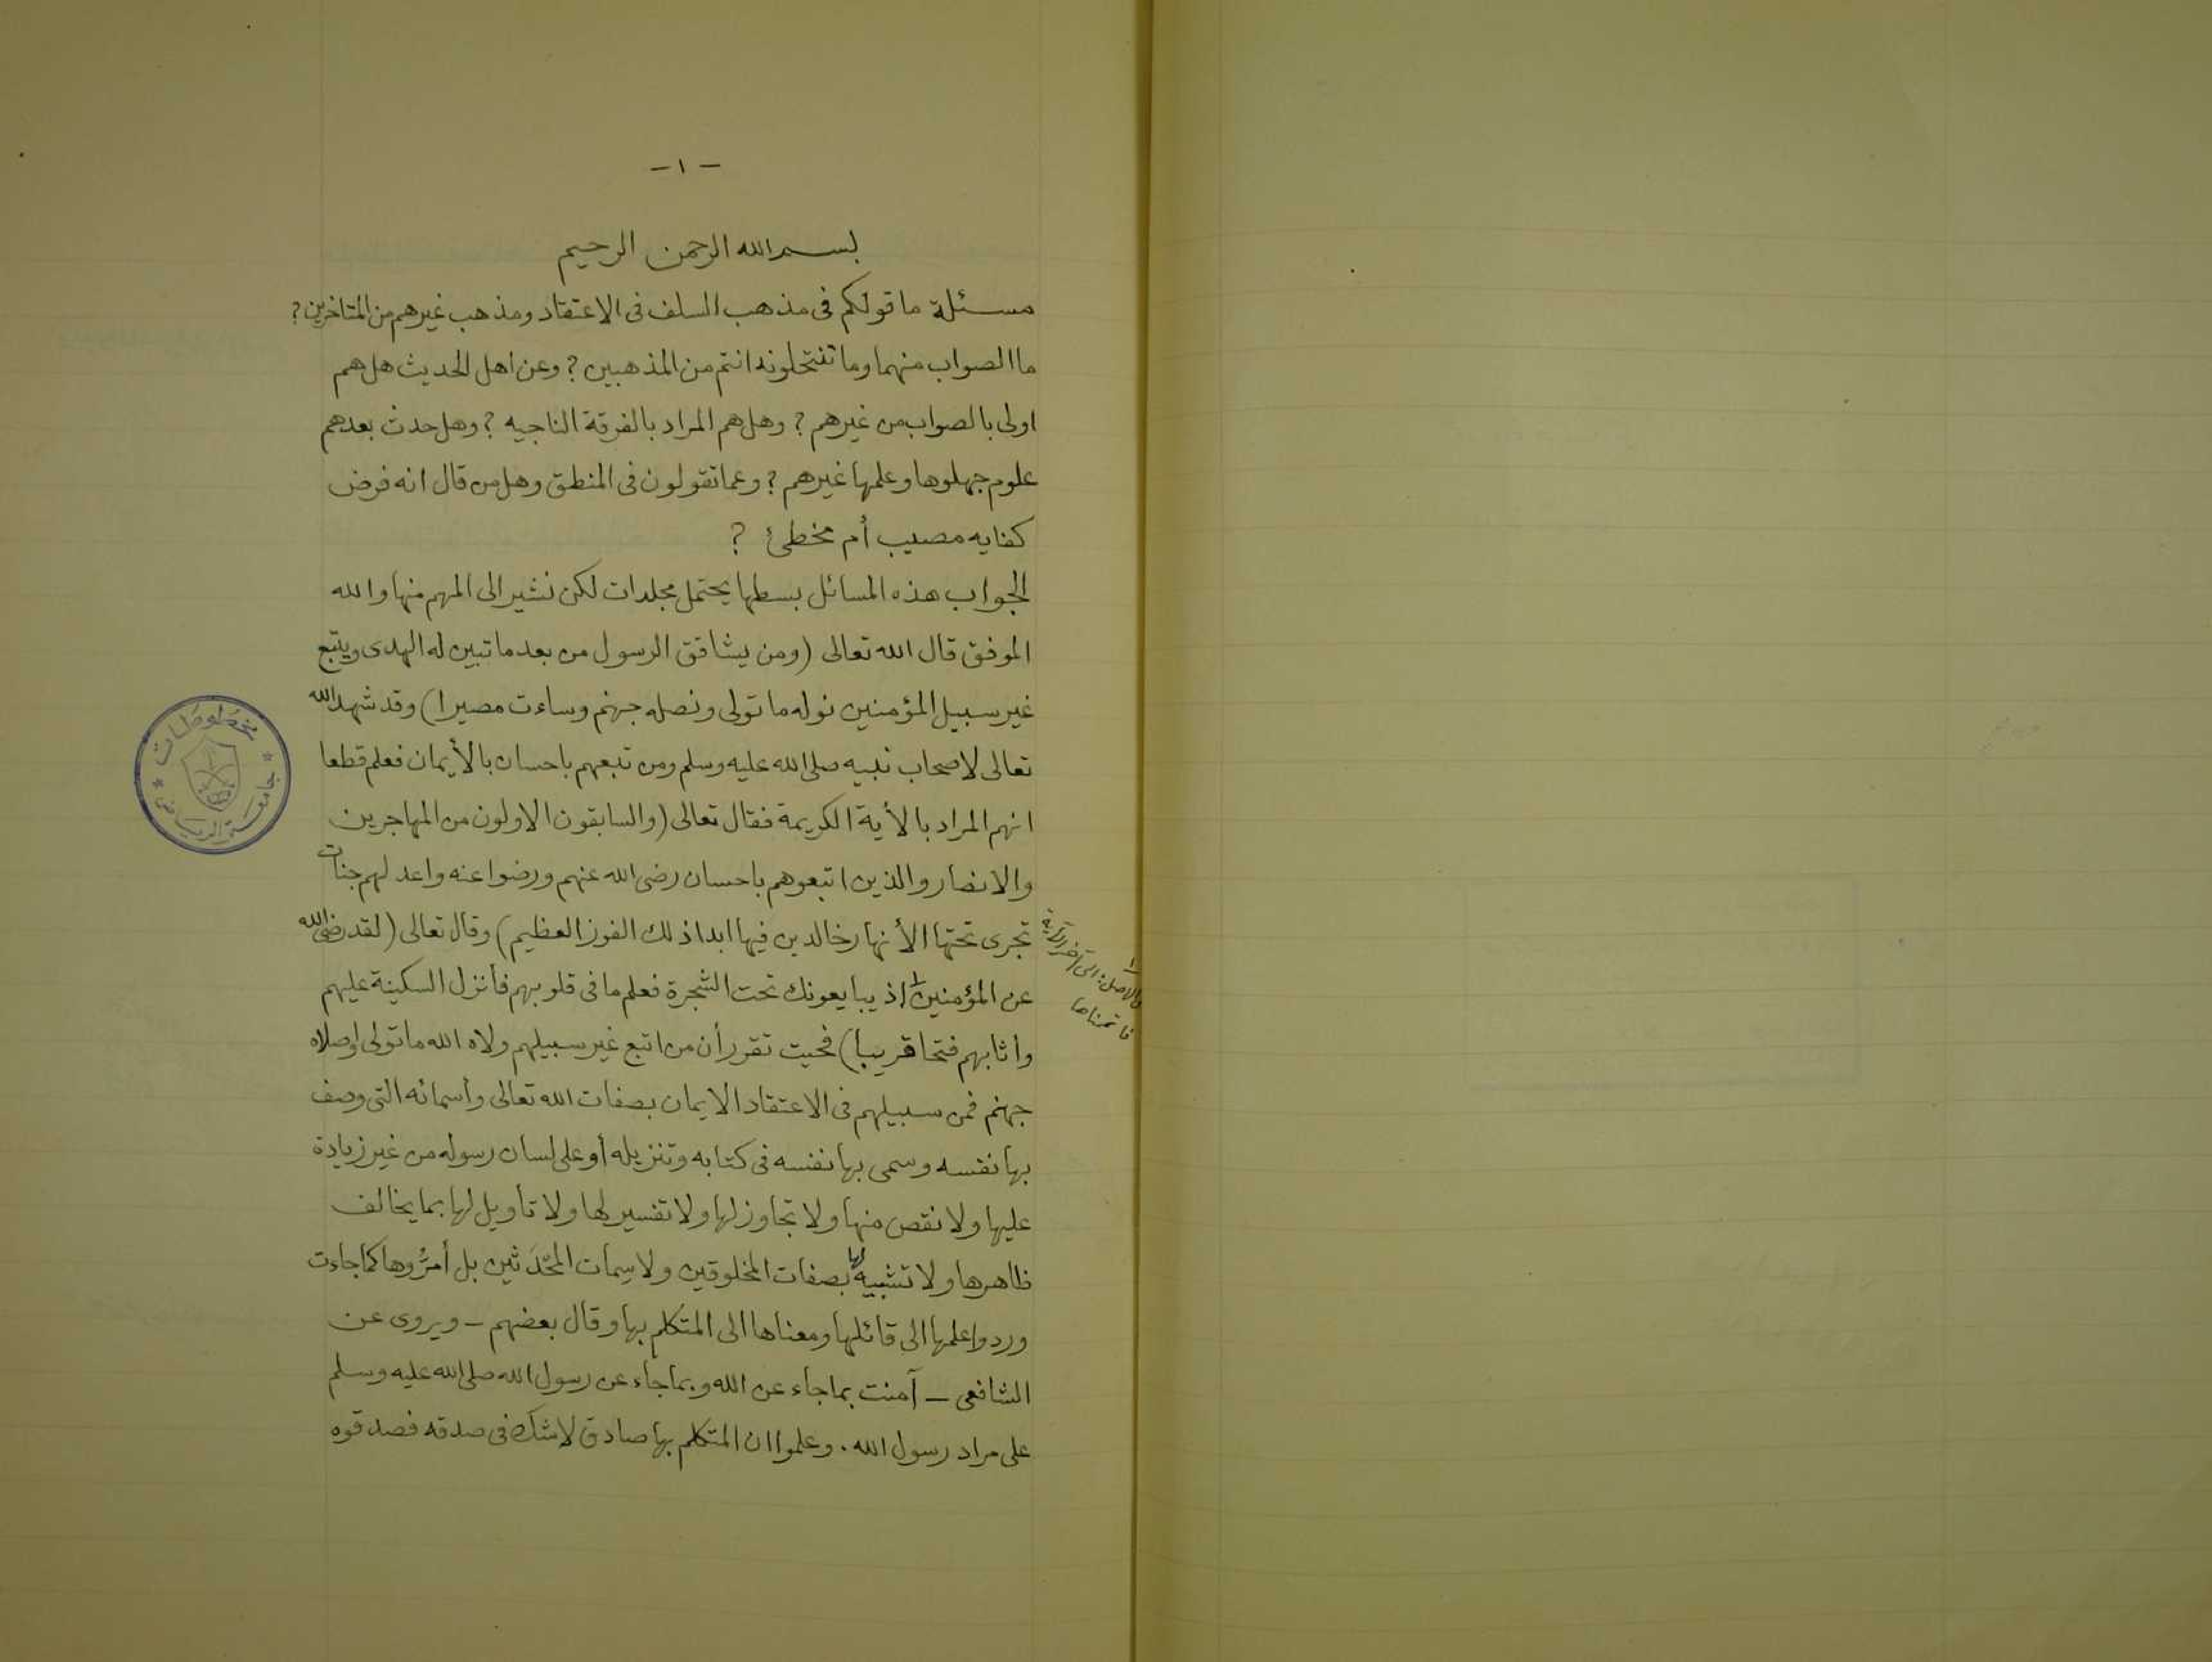 - ١ -
بسم الله الرحمن الرحيم
مسئلة ما قولكم فى مذهب السلف فى الاعتقاد ومذهب غيرهم من المتاخرين ؟
ما الصواب منهما وما تنتحلونه انتم من المذهبين ؟ وعن اهل الحديث هل هم
اولى بالصواب من غيرهم ؟ وهل هم المراد بالفرقة الناجيه ؟ وهل حدث بعدهم
علوم جهلوها وعلمها غيرهم ؟ وعما تقولون فى المنطق وهل من قال انه فرض
كفايه مصيب أم مخطئ ؟
الجواب هذه المسائل بسطها يحتمل مجلدات لكن نشير الى المهم منها والله
الموفق قال الله تعالى (ومن يشاقق الرسول من بعد ما تبين له الهدى ويتبع
غير سبيل المؤمنين نوله ما تولى ونصله جهنم وساءت مصيرا) وقد شهد الله
تعالى لاصحاب نبيه صلى الله عليه وسلم ومن تبعهم باحسان بالأيمان فعلم قطعا
انهم المراد بالأية الكريمة فقال تعالى (والسابقون الاولون من المهاجرين
والانصار والذين اتبعوهم باحسان رضى الله عنهم ورضوا عنه واعد لهم جنات
تجرى تحتها الأنهار خالدين فيها ابدا ذلك الفوز العظيم) وقال تعالى (لقد رضى الله
عن المؤمنين١ اذ يبايعونك تحت الشجرة فعلم ما فى قلوبهم فأنزل السكينة عليهم
واثابهم فتحا قريبا) فحيت تقرر أن من اتبع غير سبيلهم ولاه الله ما تولى اوصلاه
جهنم فمن سبيلهم فى الاعتقاد الايمان بصفات الله تعالى وأسمائه التى وصف
بها نفسه وسمى بها نفسه فى كتابه وتنزيله أو على لسان رسوله من غير زيادة
عليها ولا نقص منها ولا تجاوز لها ولا تفسير لها ولا تأويل لها بما يخالف
ظاهرها ولا تشبيه لها بصفات المخلوقين ولا سِمات المحْدَثين بل أمَرُّوها كما جاءت
وردوا علمها الى قائلها ومعناها الى المتكلم بها وقال بعضهم – ويروى عن
الشافعى – آمنت بما جاء عن الله وبما جاء عن رسول الله صلى الله عليه وسلم
على مراد رسول الله . وعلموا ان المتكلم بها صادق لا شك فى صدقه فصدقوه
١
فالاصل: الى آخر الآية
فاتممناها
مخطوطات
جامعة الرياض